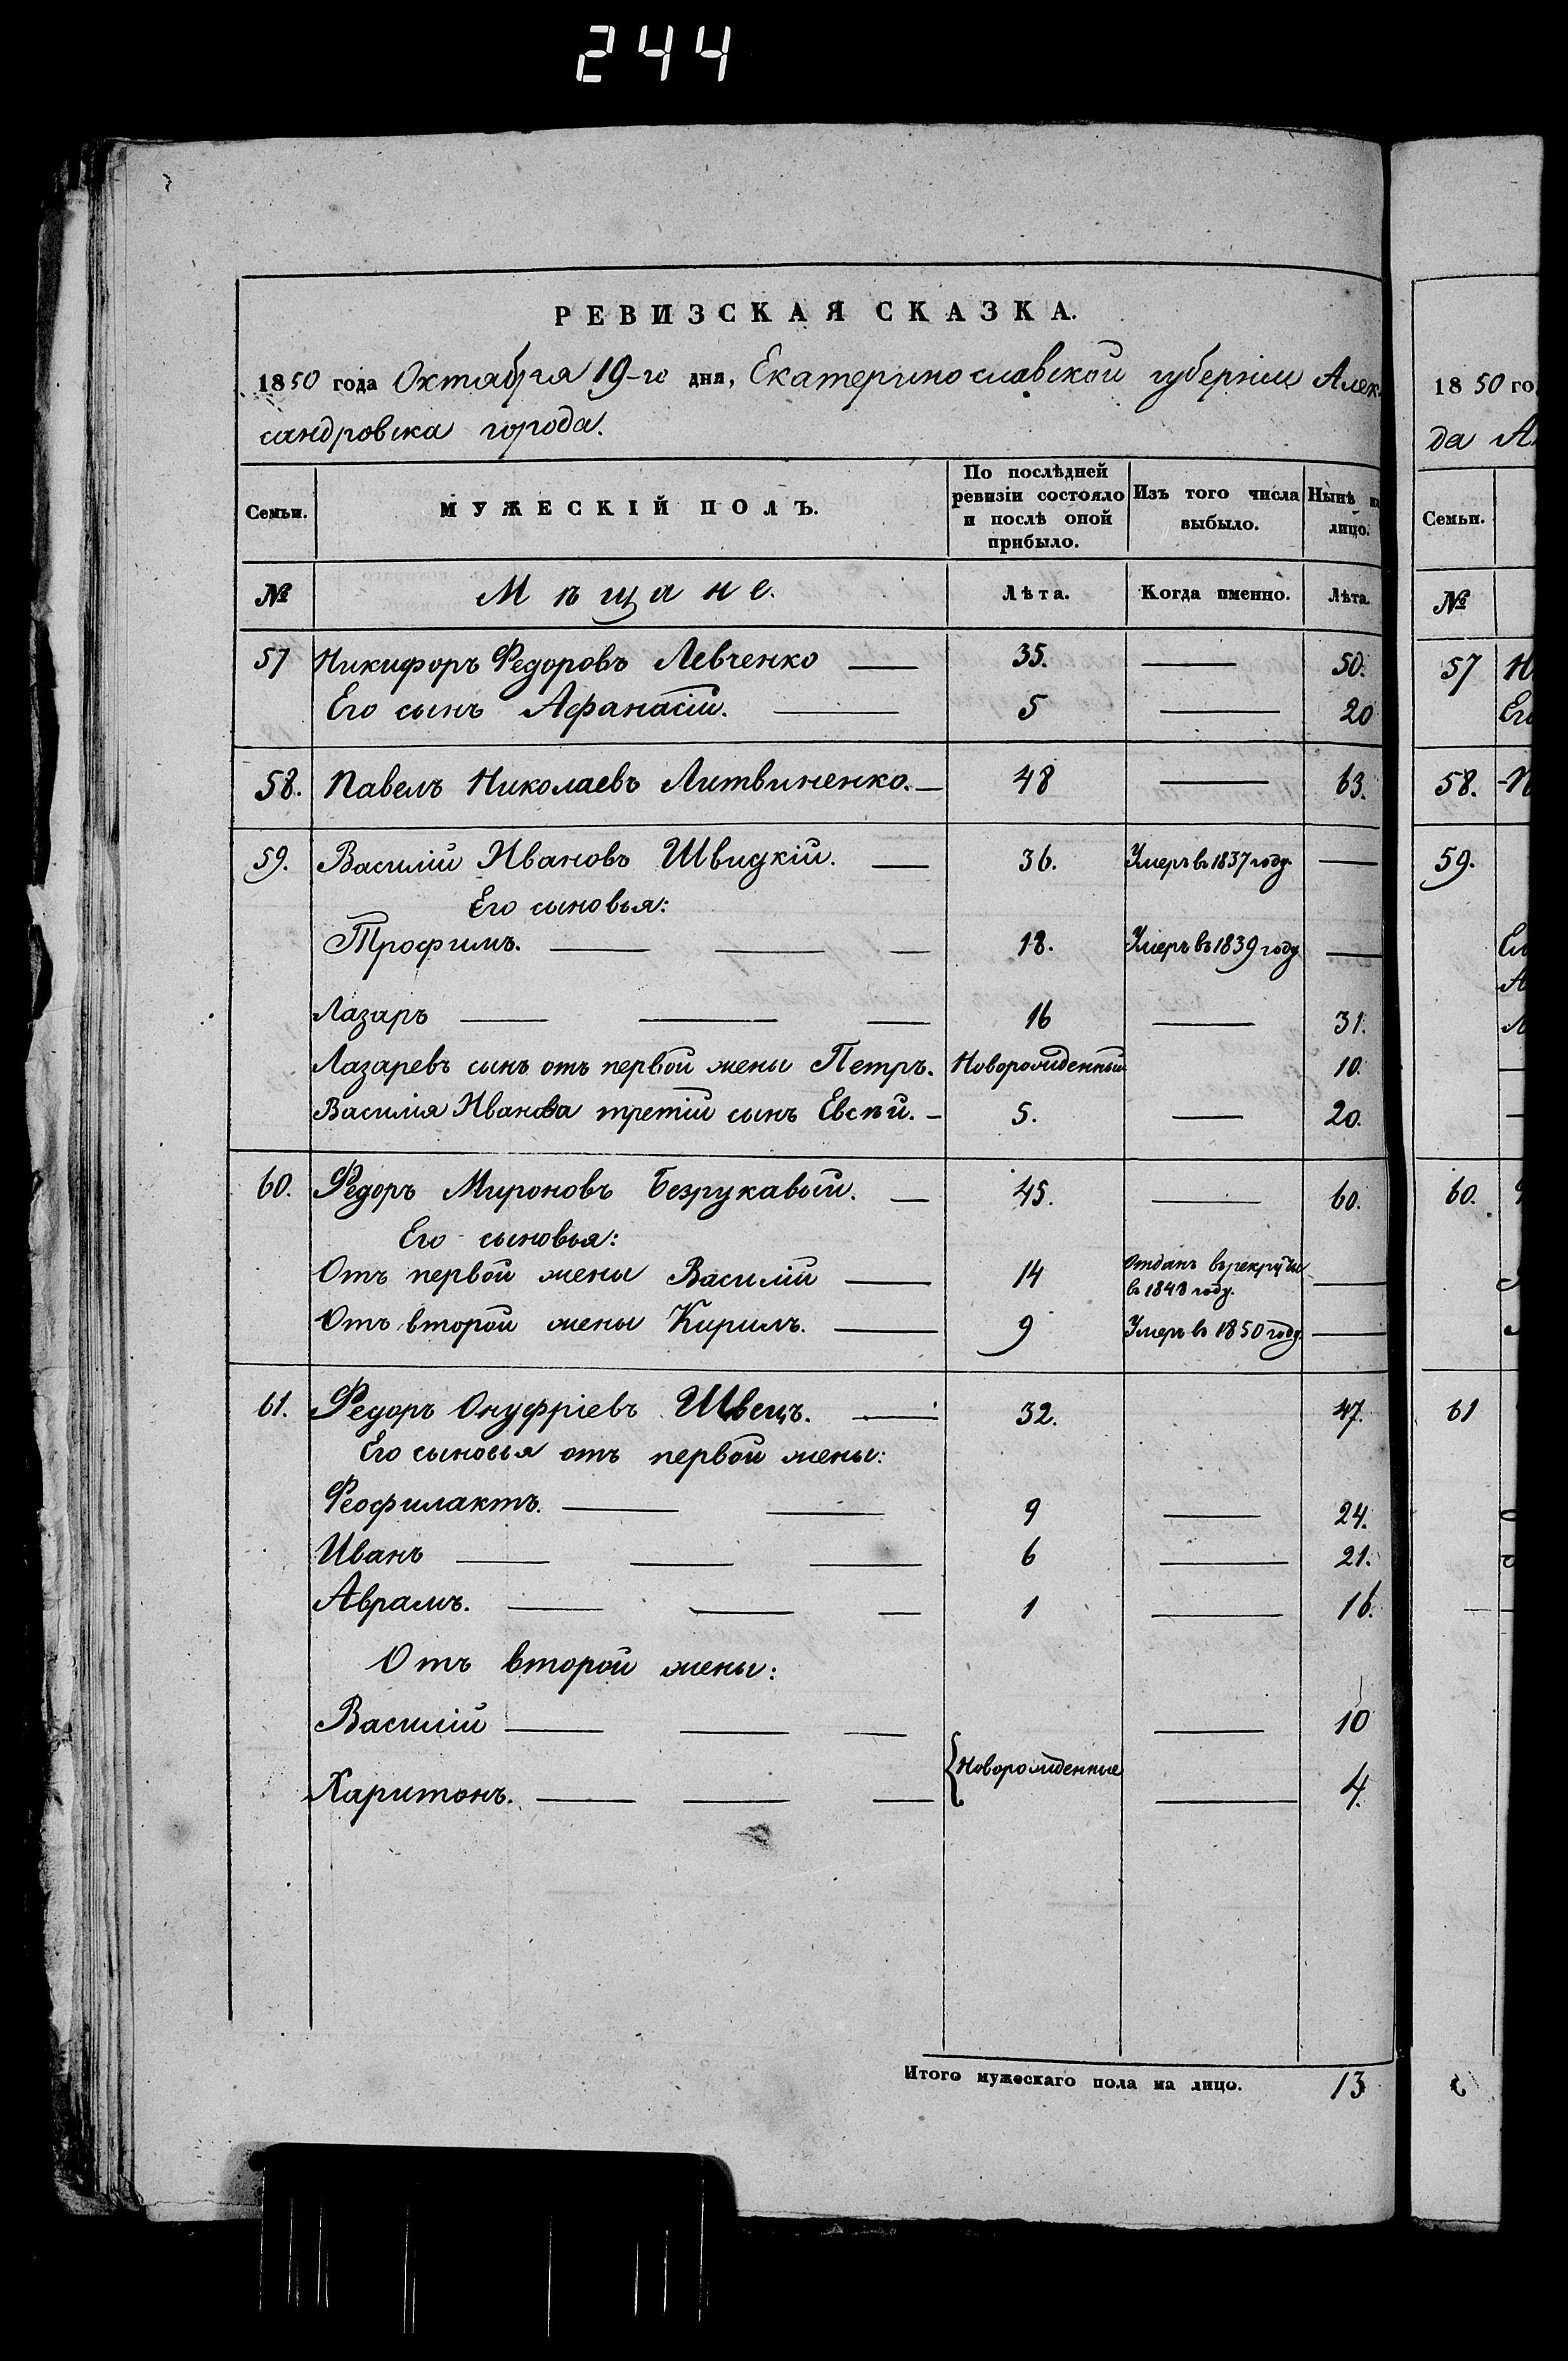 244
РЕВИЗСКАЯ СКАЗКА.
1850 года Октября 19-го дня, Екатеринославской губерніи Алек-
сандровска города.
Семьи. МУЖЕСКІЙ ПОЛЪ. По послѣдней ревизіи состояло и послѣ оной прибыло. Изъ того числа выбыло. Нынѣ на лицо.
№ Мѣщане. Лѣта. Когда именно. Лѣта.
57 Никифоръ Федоровъ Левченко — 35. — 50.
Его сынъ Афанасій. — 5 — 20
58. Павелъ Николаевъ Литвиненко. — 48 — 63.
59. Василій Ивановъ Швидкій. — 36. Умеръ въ 1837 году. —
Его сыновья:
Трофимъ. — — — 18. Умеръ въ 1839 году —
Лазаръ — — — 16 — 31.
Лазаревъ сынъ отъ первой жены Петръ. Новорожденный 10.
Василія Иванова третій сынъ Евсѣй. — 5. — 20.
60. Федоръ Мироновъ Безрукавый. — 45. — 60.
Его сыновья:
Отъ первой жены Василій — 14 Отданъ въ рекруты —
въ 1848 году.
Отъ второй жены Кирилъ. — 9 Умеръ въ 1850 году. —
61. Федоръ Онуфріевъ Швецъ. — 32. 47.
Его сыновья отъ первой жены:
Феофилактъ. — — 9 — 24.
Иванъ — — — 6 — 21.
Аврамъ. — — — 1 — 16.
Отъ второй жены:
Василій — — — — 10
{Новорожденные
Харитонъ. — — — — 4.
Итого мужескаго пола на лицо. 13
1850 го
да А
Семьи.
№
57 Н
Его
58. П
59.
60.
61